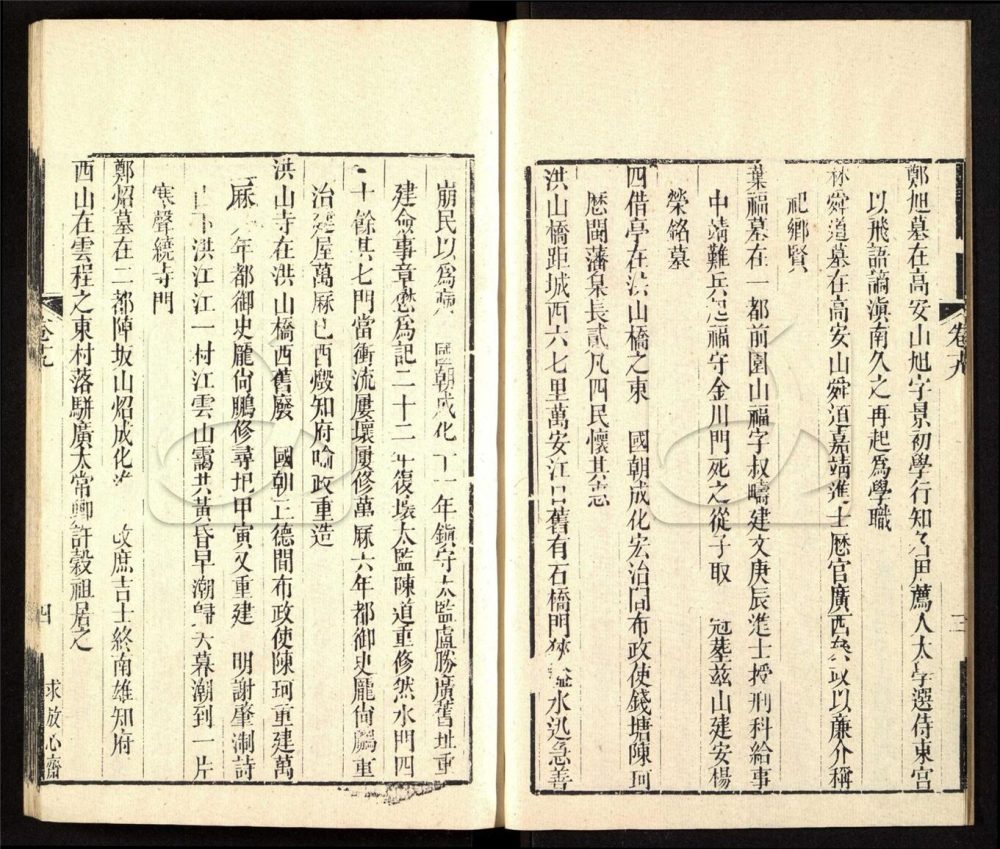 鄭旭墓在高安山旭字景初學行知名用薦入太學選侍東宮
以飛語謫滇南久之再起爲學職
林舜道墓在高安山舜道嘉靖進士歷官廣西叅政以廉介稱
祀鄉賢
葉福墓在一都前圍山福字叔疇建文庚辰進士授刑科給事
中靖難兵起福守金川門死之從子取 冠塟兹山建安楊
榮銘墓
四借亭在洪山橋之東 國朝成化宏治間布政使錢塘陳珂
歷閩藩臬長貳凡四民懷其志
洪山橋距城西六七里萬安江口舊有石橋門狹 水迅急善
卷九
三
崩民以爲病 國朝成化 十一年鎮守太監盧勝廣舊址重
建僉事章懋爲記二十二年復壞太監陳道重修然水門四
十餘其七門當衝流屢壞屢修萬厤六年都御史龐尙鵬重
治 屋萬厤已酉燬知府喻政重造
洪山寺在洪山橋西舊廢 國朝正德間布政使陳珂重建萬
厤 年都御史龐尙鵬修尋圯甲寅又重建 明謝肇淛詩
洪江江一村江雲山靄共黃昏早潮歸 暮潮到一片
寒聲繞寺門
鄭炤墓在二都陣坂山炤成化進 改庶吉士終南雄知府
西山在雲程之東村落駢廣太常卿許穀祖居之
四
求放心齋